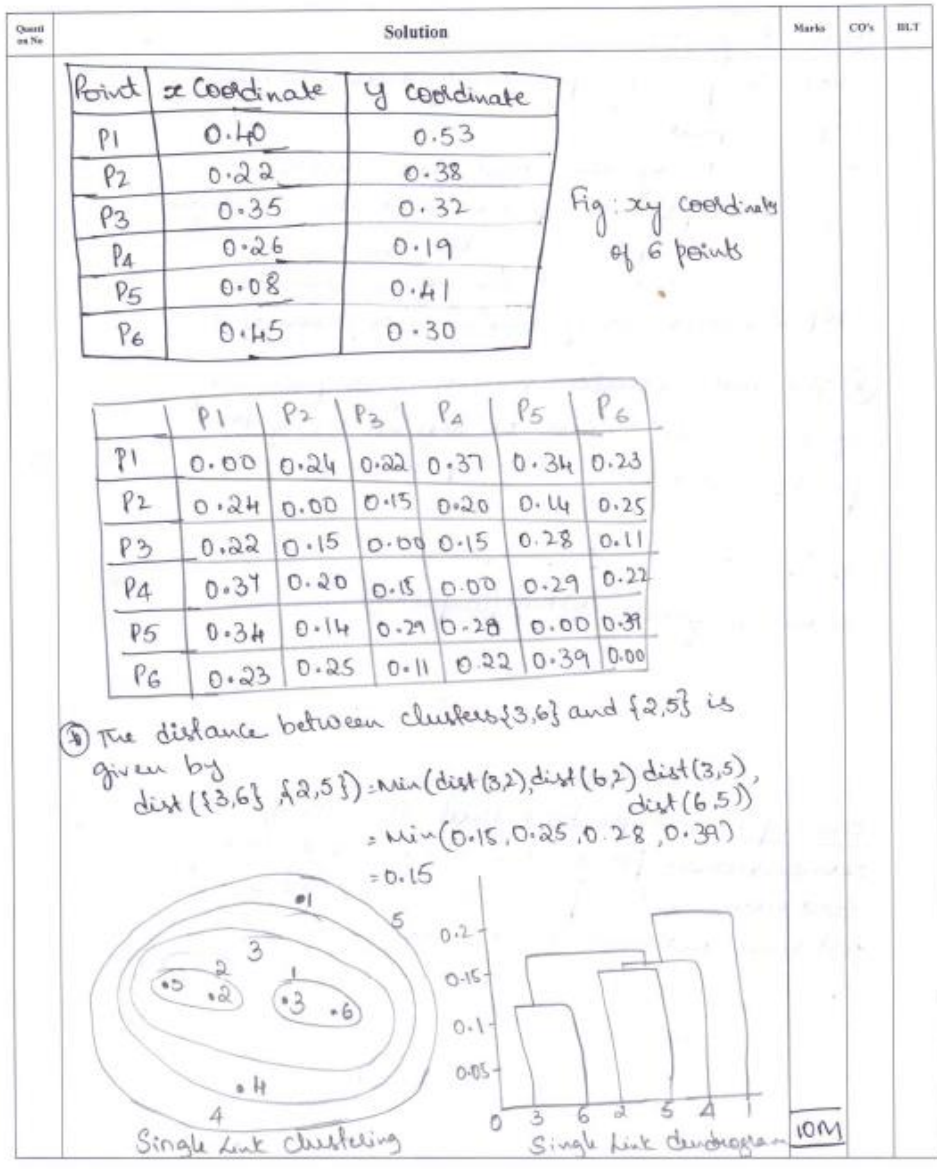 Questi on No Solution Marks CO's BLT
Point x Coordinate y coordinate
P1 0.40 0.53
P2 0.22 0.38
P3 0.35 0.32
P4 0.26 0.19
P5 0.08 0.41
P6 0.45 0.30
Fig: xy coordinates
of 6 points
P1 P2 P3 P4 P5 P6
P1 0.00 0.24 0.22 0.37 0.34 0.23
P2 0.24 0.00 0.15 0.20 0.14 0.25
P3 0.22 0.15 0.00 0.15 0.28 0.11
P4 0.37 0.20 0.15 0.00 0.29 0.22
P5 0.34 0.14 0.29 0.28 0.00 0.39
P6 0.23 0.25 0.11 0.22 0.39 0.00
The distance between clusters {3,6} and {2,5} is
given by
dist ({3,6} {2,5}) = Min(dist(3,2), dist(6,2) dist(3,5),
dist(6,5))
= Min(0.15, 0.25, 0.28, 0.39)
= 0.15
1
5
3
2 1
5 2 3 6
4
4
Single Link Clustering
0.2
0.15
0.1
0.05
0 3 6 2 5 4 1
Single Link dendrogram
10M